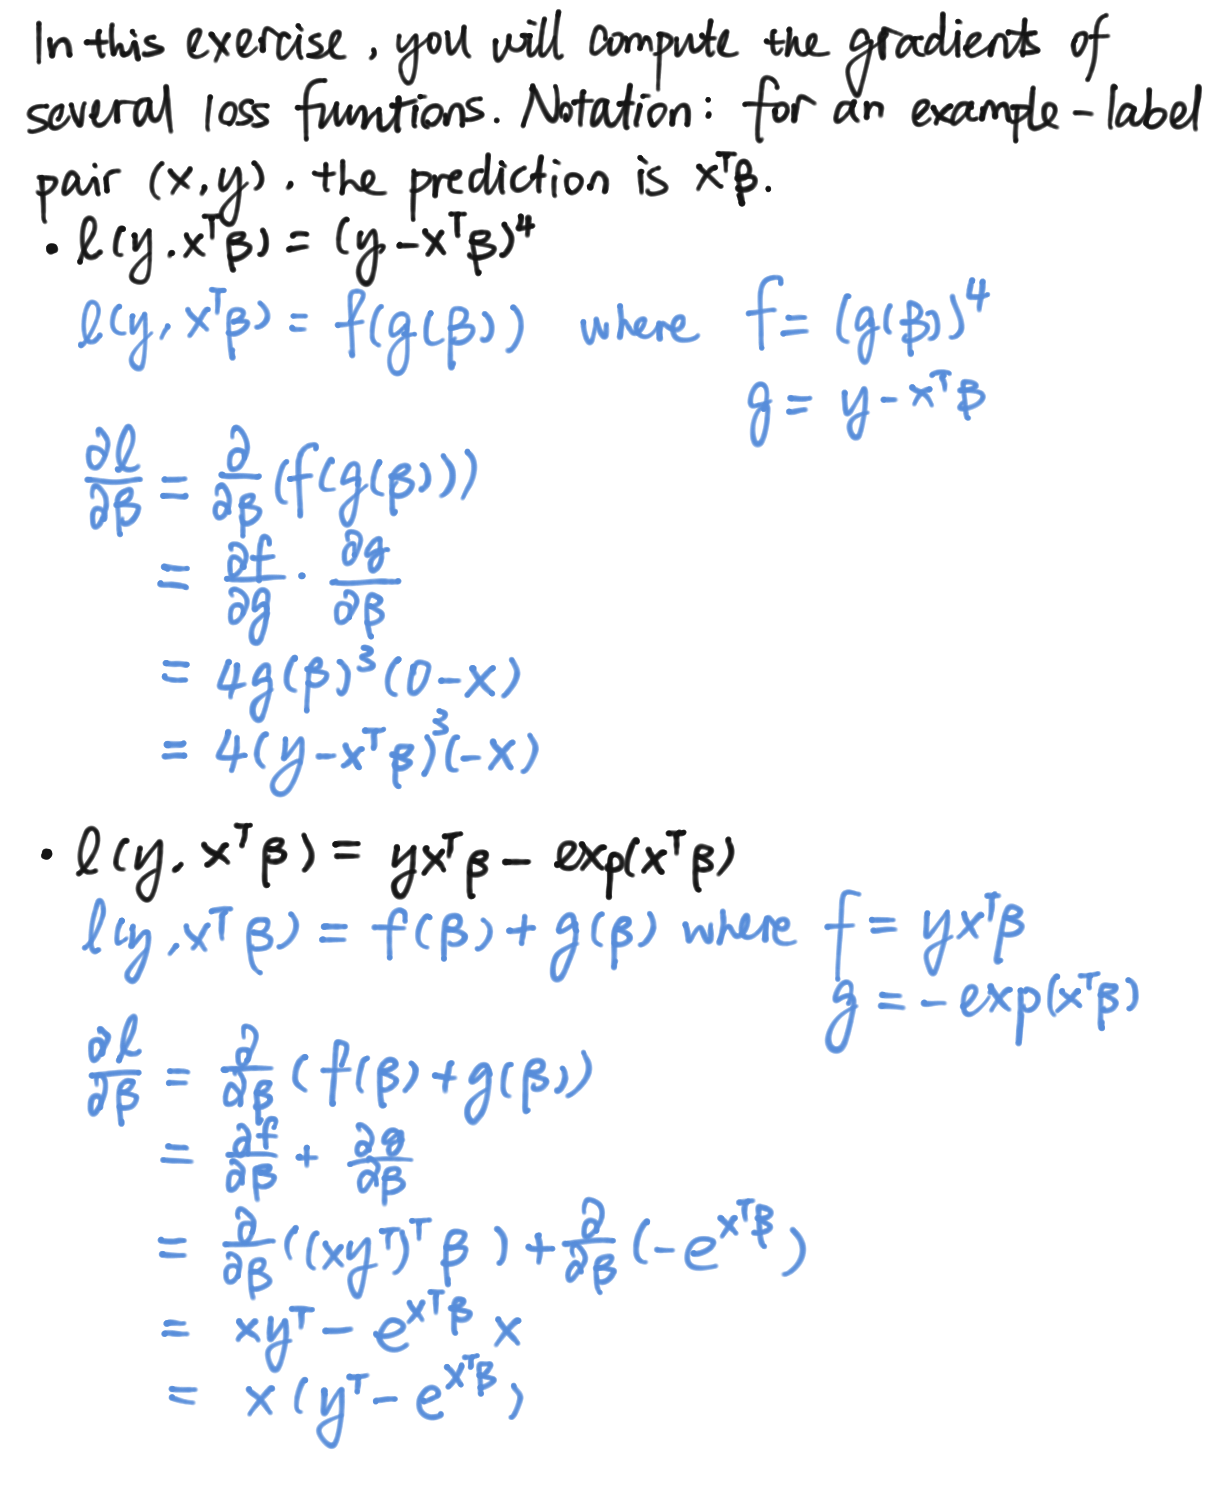 In this exercise, you will compute the gradients of
several loss funntions. Notation: for an example-label
pair (x,y). the prediction is xᵀβ.
• ℓ(y.xᵀβ) = (y-xᵀβ)⁴
ℓ(y, xᵀβ) = f(g(β)) where f = (g(β))⁴
g = y - xᵀβ
∂ℓ/∂β = ∂/∂β (f(g(β)))
= ∂f/∂g · ∂g/∂β
= 4g(β)³(0-x)
= 4(y-xᵀβ)³(-x)
• ℓ(y, xᵀβ) = yxᵀβ - exp(xᵀβ)
ℓ(y,xᵀβ) = f(β) + g(β) where f = yxᵀβ
g = -exp(xᵀβ)
∂ℓ/∂β = ∂/∂β (f(β)+g(β))
= ∂f/∂β + ∂g/∂β
= ∂/∂β ((xyᵀ)ᵀ β) + ∂/∂β (-e^(xᵀβ))
= xyᵀ - e^(xᵀβ) x
= x (yᵀ - e^(xᵀβ))